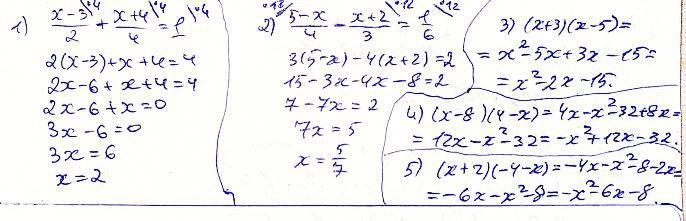 1) x-3/2 \·4 + x+4/4 \·4 = 1 \·4
2(x-3)+x+4=4
2x-6+x+4=4
2x-6+x=0
3x-6=0
3x=6
x=2
2) 5-x/4 \·12 - x+2/3 \·12 = 1/6 \·12
3(5-x)-4(x+2)=2
15-3x-4x-8=2
7-7x=2
7x=5
x=5/7
3) (x+3)(x-5)=
=x²-5x+3x-15=
=x²-2x-15.
4) (x-8)(4-x)=4x-x²-32+8x=
=12x-x²-32=-x²+12x-32.
5) (x+2)(-4-x)=-4x-x²-8-2x=
=-6x-x²-8=-x²-6x-8.